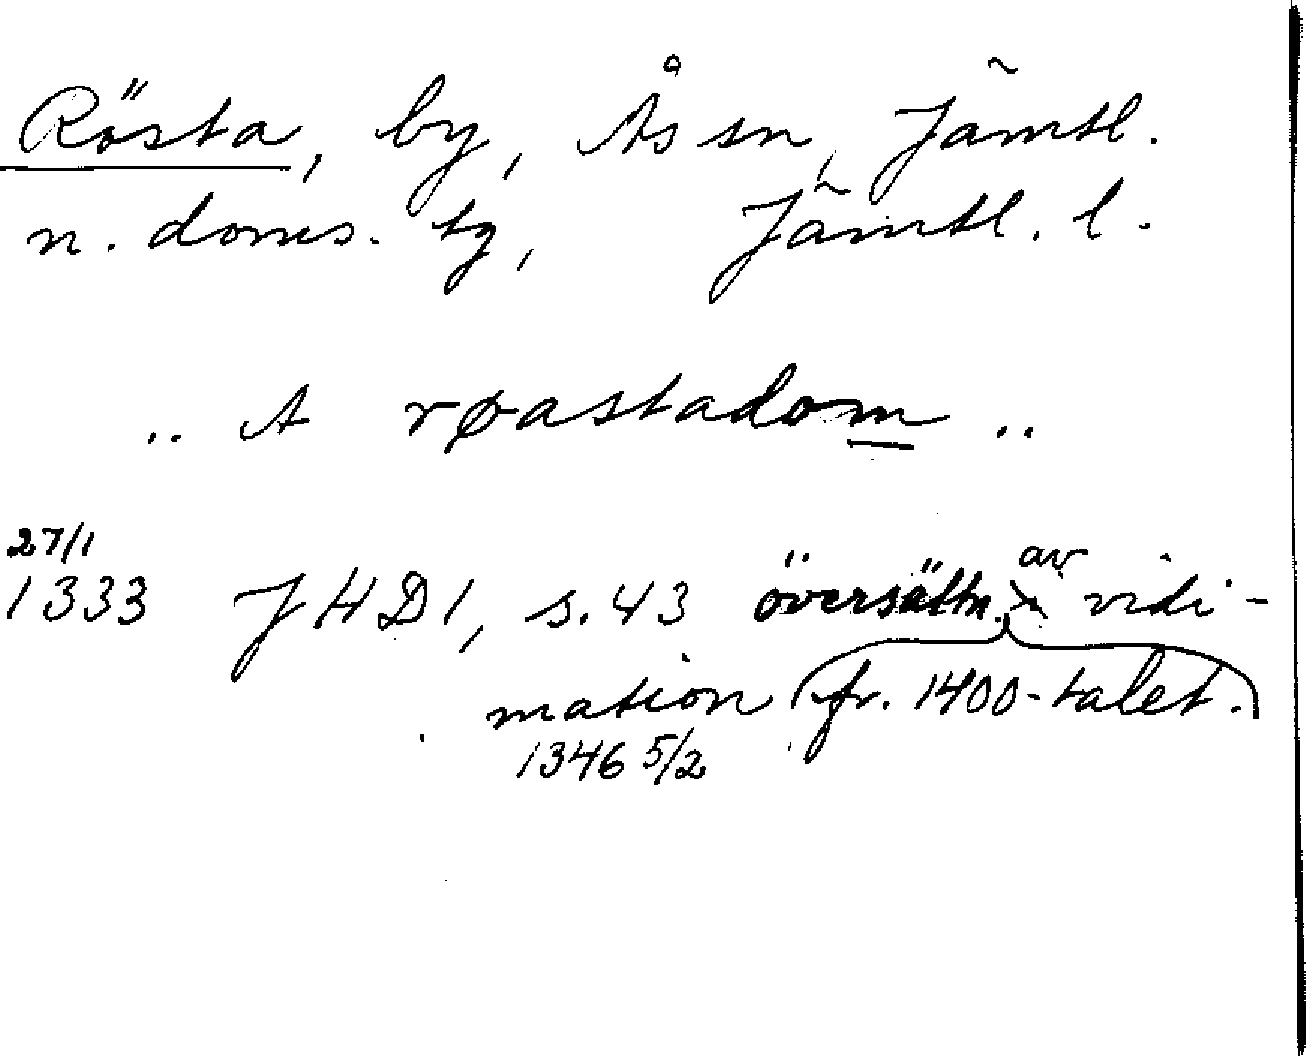 Rösta, by, Ås sn, Jämtl.
n. doms. tg, Jämtl. l.
.. A røastadom ..
27/1
1333 JHD1, s. 43 översättn. av vidi-
mation (fr. 1400-talet.)
1346 5/2